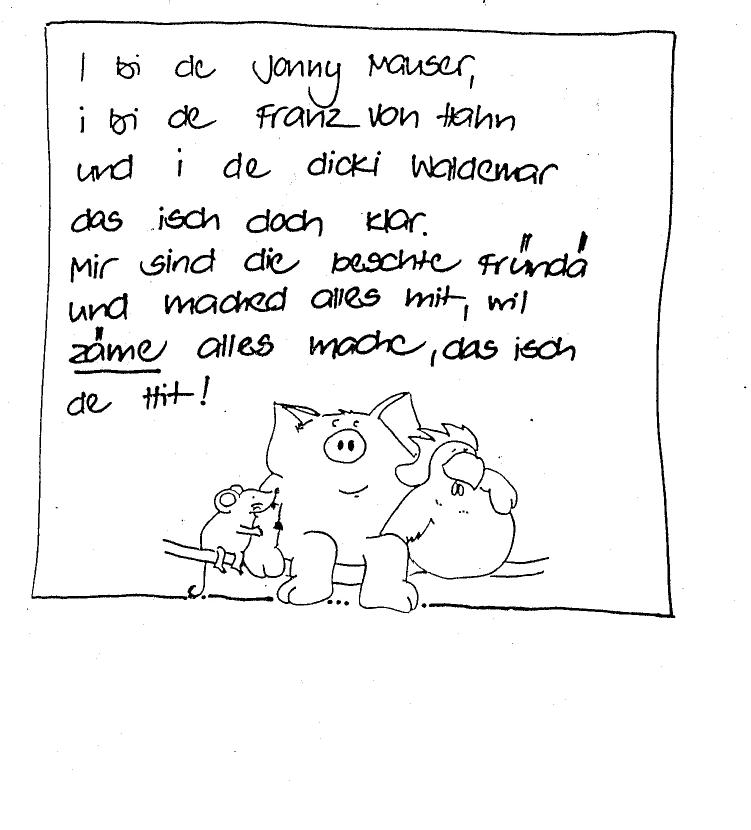 I bi de Jonny Mauser,
i bi de Franz von Hahn
und i de dicki Waldemar
das isch doch klar.
Mir sind die beschte Fründä
und mached alles mit, wil
zäme alles mache, das isch
de Hit!